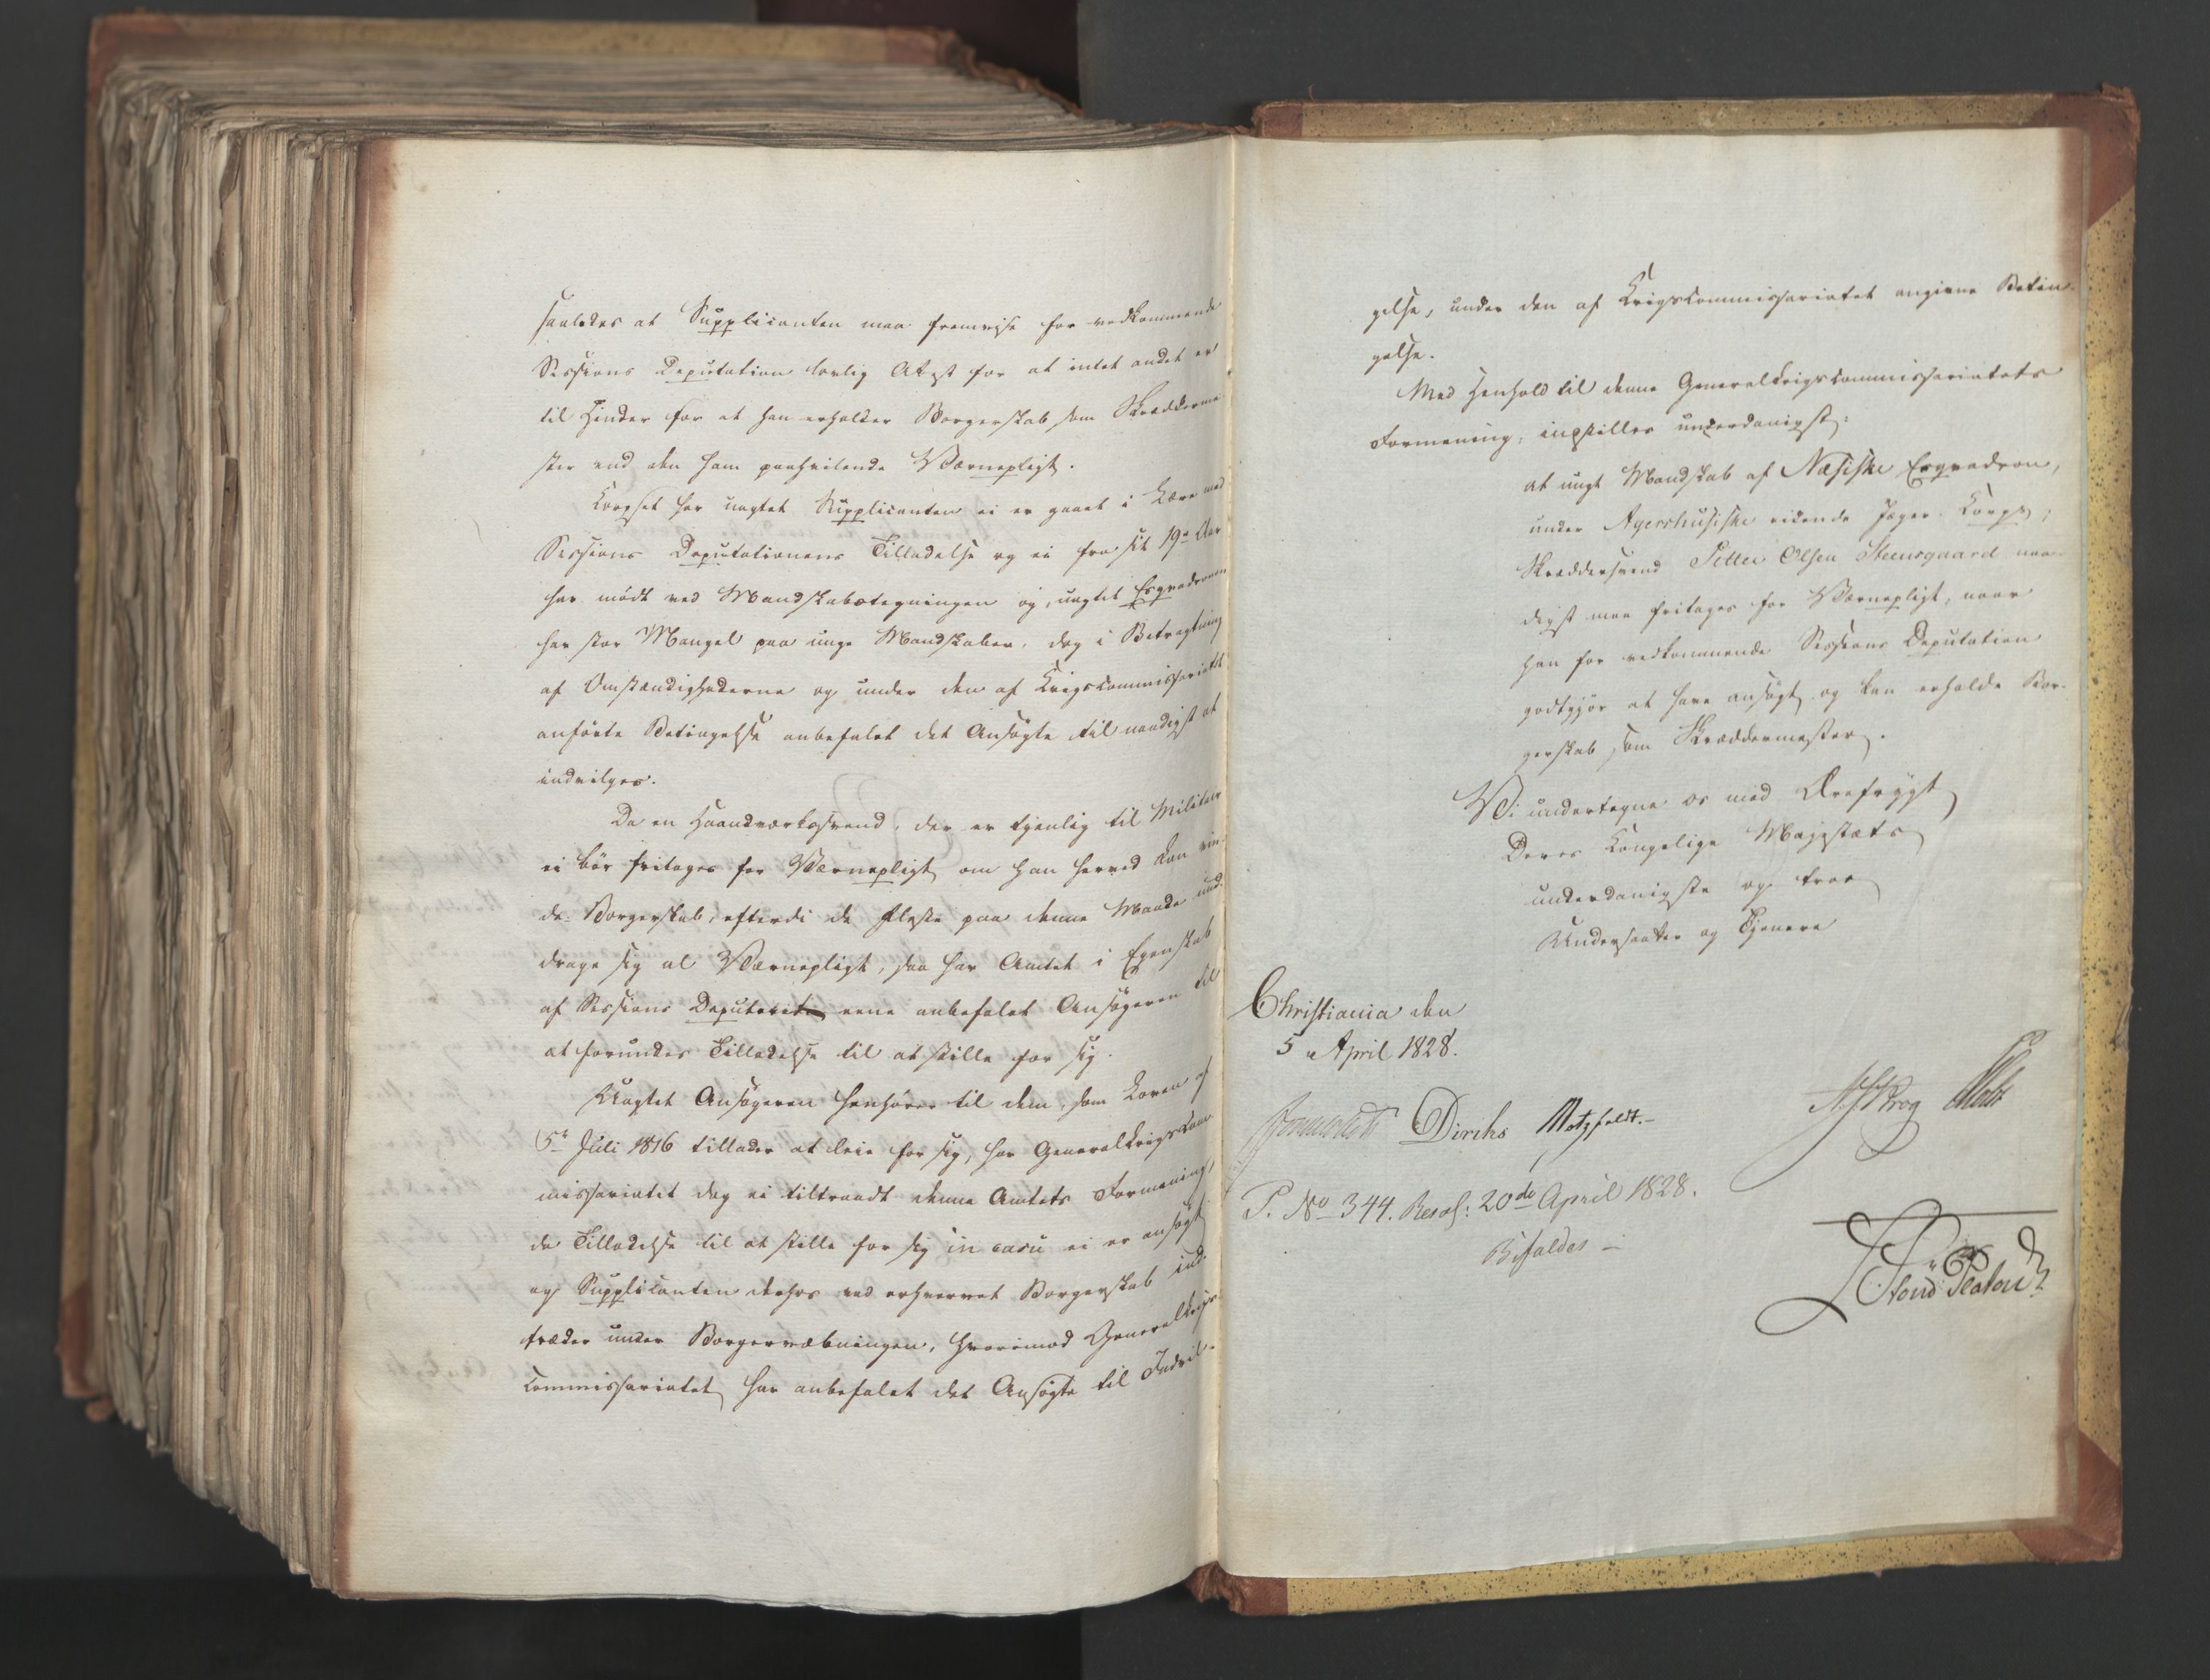 saaledes at Supplicanten maa fremvise for vedkommende
Sessions Deputation lovlig Attest for at intet andet er
til Hinder for at han erholder Borgerskab som Skrædderme-
ster end den ham paahvilende Værnepligt.
Corpset har uagtet Supplicanten ei er gaaet i Lære med
Sessions Deputationens Tilladelse og ei fra sit 19de Aar
har mødt ved Mandskabstegningen og, uagtet Esqvadronen
har stor Mangel paa unge Mandskaber, dog i Betragtning
af Omstændighederne og under den af Krigscommissariatet
anførte Betingelse anbefalet det Ansøgte til naadigst at
indvilges.
Da en Haandværkssvend, der er tjenlig til Militair
ei bør fritages for Værnepligt om han herved kan vin-
de Borgerskab, efterdi de fleste paa denne Maade und-
drage sig al Værnepligt, saa har Amtet i Egenskab
af Sessions Deputeret ene anbefalet Ansøgeren til
at forundes Tilladelse til at stille for sig.
Uagtet Ansøgeren henhører til dem, som Loven af
5te Juli 1816 tillader at leie for sig, har Generalkrigscom-
missariatet dog ei tiltraadt denne Amtets Formening,
da Tilladelse til at stille for sig in casu ei er ansøgt
og Supplicanten desuden ved erhvervet Borgerskab ind-
træder under Borgervæbningen, hvorimod Generalkrigs-
commissariatet har anbefalet det Ansøgte til Indvil-
gelse, under den af Krigscommissariatet angivne Betin-
gelse.
Med Henhold til denne Generalkrigscommissariatets
Formening, indstilles underdanigst:
at ungt Mandskab af Næsiske Esqvadron,
under Agershusiske ridende Jæger-Corps,
Skræddersvend Petter Olsen Steensgaard naa-
digst maa fritages for Værnepligt, naar
han for vedkommende Sessions Deputation
godtgjør at have ansøgt og kan erholde Bor-
gerskab som Skræddermester.
Vi undertegne os med Ærefrygt
Deres Kongelige Majestæts
underdanigste og troe
Undersaatter og Tjenere
Christiania den
5 April 1828.
Diriks Motzfeldt.
P. No 344. Resol: 20de April 1828.
Bifaldes